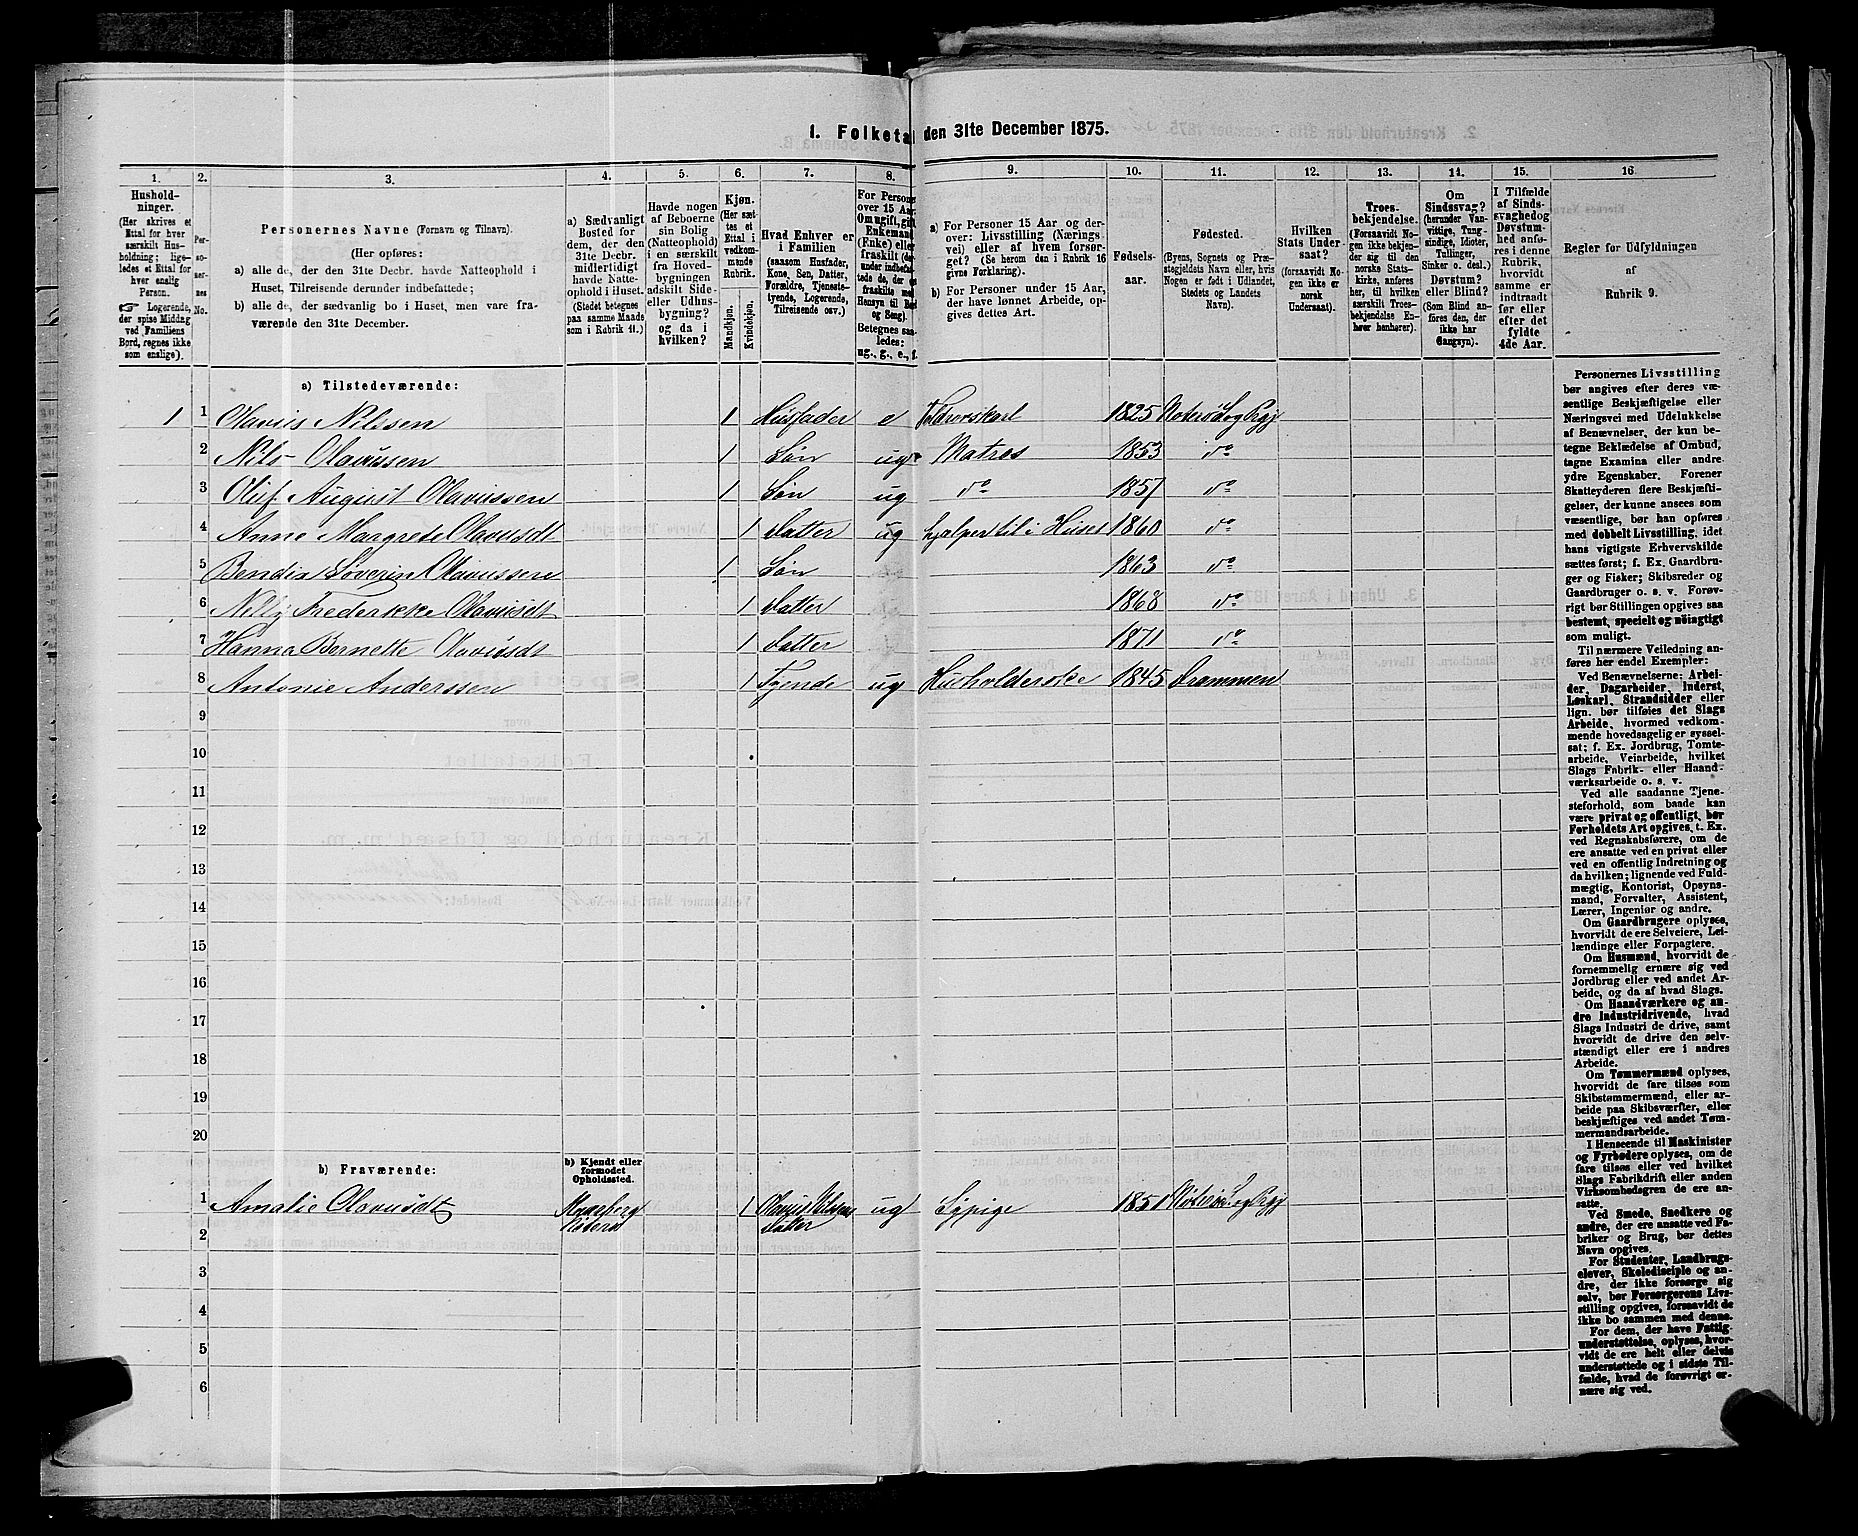 1. Folketal den 31te December 1875.
1. 2. 3. 4. 5. 6. 7. 8. 9. 10. 11. 12. 13. 14. 15. 16.
Hushold-
ninger.
(Her skrives et
Ettal for hver
særskilt Hus-
holdning; lige-
ledes et Ettal for
hver enslig
Person.
☞ Logerende,
der spise Middag
ved Familiens
Bord, regnes ikke
som enslige).
Per-
so-
ner-
nes
No.
Personernes Navne (Fornavn og Tilnavn).
(Her opføres:
a) alle de, der den 31te Decbr. havde Natteophold i
Huset, Tilreisende derunder indbefattede;
b) alle de, der sædvanlig bo i Huset, men vare fra-
værende den 31te December.
a) Sædvanligt
Bosted for
dem, der den
31te Decbr.
midlertidigt
havde Natte-
ophold i Huset.
(Stedet betegnes
paa samme Maade
som i Rubrik 11.)
Havde nogen
af Beboerne
sin Bolig
(Natteophold)
i en særskilt
fra Hoved-
bygningen
adskilt Side-
eller Udhus-
bygning?
og da i
hvilken?
Kjøn.
(Her sæt-
tes et
Ettal i
vedkom-
mende
Rubrik.
Mandkjøn.
Kvindekjøn.
Hvad Enhver er
i Familien
(saasom Husfader,
Kone, Søn, Datter,
Forældre, Tjeneste-
tyende, Logerende,
Tilreisende osv.)
For Personer
over 15 Aar:
Om ugift, gift,
Enkemand
(Enke) eller
fraskilt
Betegnes saa-
ledes:
ug., g., e., f.
a) For Personer 15 Aar og der-
over: Livsstilling (Nærings-
vei) eller af hvem forsør-
get? (Se herom den i Rubrik 16
givne Forklaring).
b) For Personer under 15 Aar,
der have lønnet Arbeide, op-
gives dettes Art.
Fødsels-
aar.
Fødested.
(Byens, Sognets og Præ-
stegjeldets Navn eller, hvis
Nogen er født i Udlandet,
Stedets og Landets
Navn).
Hvilken
Stats Under-
saat?
(forsaavidt No-
gen ikke er
norsk
Undersaat).
Troes-
bekjendelse.
(Forsaavidt No-
gen ikke bekjen-
der sig til den
norske Stats-
kirke, anføres
her, til hvilken
særskilt Troes-
bekjendelse En-
hver henhører).
Om
Sindssvag?
(herunder Van-
vittige, Tung-
sindige, Idioter,
Tullinger,
Sinker o. desl.)
Døvstum?
eller Blind?
(Som Blind an-
føres den, der
ikke har
Gangsyn).
I Tilfælde
af Sinds-
svaghed og
Døvstum-
hed anfø-
res i denne
Rubrik,
hvorvidt
samme er
indtraadt
før eller
efter det
fyldte
4de Aar.
Regler for Udfyldningen
af
Rubrik 9.
a) Tilstedeværende:
1 1 Olavus Nilssen 1 Husfader e 1825
2 Nils Olavussen 1 Søn ug. Matros 1853 do
3 Oluf August Olavussen 1 Søn ug do 1857 do
4 Anne Margrete Olavusdt 1 Datter ug hjælper til i Huset 1860 do
5 Severin Olavussen 1 Søn 1863 do
6 Nelly Frederikke Olavusdt 1 Datter 1868 do
7 Hanna Bernette Olavusdt 1 Datter 1871 do
8 Antonie Anderssen 1 Tyende ug Husholderske 1845 Drammen
9
10
11
12
13
14
15
16
17
18
19
20
b) Fraværende:
b) Kjendt eller
formodet
Opholdssted.
1 Amalie Olavusdt 1 Olavus Nilssens ug 1851
2 Datter
3
4
5
6
Personernes Livsstilling
bør angives efter deres væ-
sentlige Beskjæftigelse eller
Næringsvei med Udelukkelse
af Benævnelser, der kun be-
tegne Beklædelse af Ombud,
tagne Examina eller andre
ydre Egenskaber. Forener
Skatteyderen flere Beskjæfti-
gelser, der kunne ansees som
væsentlige, bør han opføres
med dobbelt Livsstilling, idet
hans vigtigste Erhvervskilde
sættes først; f. Ex. Gaardbru-
ger og Fisker; Skibsreder og
Gaardbruger o. s. v. Forøv-
rigt bør Stillingen opgives saa
bestemt, specielt og nöiagtigt
som muligt.
Til nærmere Veiledning an-
føres her endel Exempler:
Ved Benævnelserne: Arbei-
der, Dagarbeider, Inderst,
Løskarl, Strandsidder eller
lign. bør tilføies det Slags
Arbeide, hvormed vedkom-
mende hovedsagelig er syssel-
sat; f. Ex. Jordbrug, Tomte-
arbeide, Veiarbeide, hvilket
Slags Fabrik- eller Haand-
værksarbeide o. s. v.
Ved alle saadanne Tjene-
steforhold, som baade kan
være privat og offentligt, bør
Forholdets Art opgives, t. Ex.
ved Regnskabsførere, om de
ere ansatte ved en privat eller
ved en offentlig Indretning og
da hvilken; lignende ved Fuld-
mægtig, Kontorist, Opsyns-
mand, Forvalter, Assistent,
Lærer, Ingeniør og andre.
Om Gaardbrugere oplyses,
hvorvidt de ere Selveiere, Lei-
lændinge eller Forpagtere.
Om Husmænd, hvorvidt de
fornemmelig ernære sig ved
Jordbrug eller ved andet Ar-
beide, og da af hvad Slags.
Om Haandværkere og an-
dre Industridrivende, hvad
Slags Industri de drive, samt
hvorvidt de drive den selv-
stændigt eller ere i andres
Arbeide.
Om Tømmermænd oplyses,
hvorvidt de fare tilsøs som
Skibstømmermænd, eller ar-
beide paa Skibsværfter, eller
beskjæftiges ved andet Tøm-
mermandsarbeide.
I Henseende til Maskinister
og Fyrbødere oplyses, om de
fare tilsøs eller ved hvilket
Slags Fabrikdrift eller anden
Virksomhedsgren de ere an-
satte.
Ved Smede, Snedkere og
andre, der ere ansatte ved Fa-
briker og Brug, bør dettes
Navn opgives.
For Studenter, Landbrugs-
elever, Skoledisciple og an-
dre, der ikke forsørge sig
selv, bør Forsørgerens Livs-
stilling opgives, forsaavidt de
ikke bo sammen med denne.
For dem, der have Fattig-
understøttelse, oplyses, hvor-
vidt de ere helt eller delvis
understøttede og i sidste Til-
fælde, hvad de forøvrigt er-
nære sig ved.